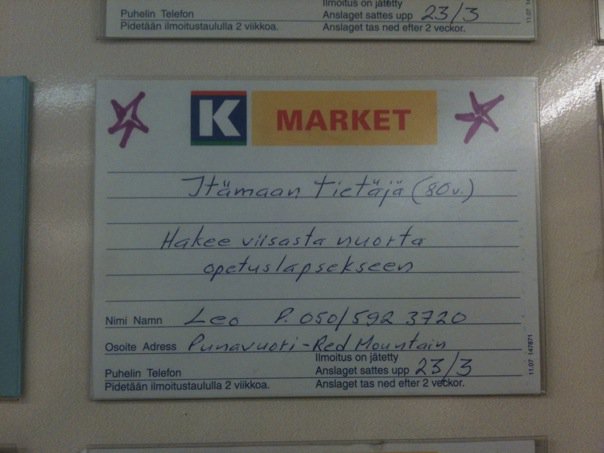 Ilmoitus on jätetty
Puhelin Telefon
Anslaget sattes upp 23/3
Pidetään ilmoitustaululla 2 viikkoa.
Anslaget tas ned efter 2 veckor.
11.07
K MARKET
Itämaan tietäjä (80v.)
Hakee viisasta nuorta
opetuslapsekseen
Nimi Namn Leo P. 050/592 3720
Osoite Adress Punavuori-Red Mountain
Ilmoitus on jätetty
Puhelin Telefon
Anslaget sattes upp 23/3
Pidetään ilmoitustaululla 2 viikkoa.
Anslaget tas ned efter 2 veckor.
11.07 147671